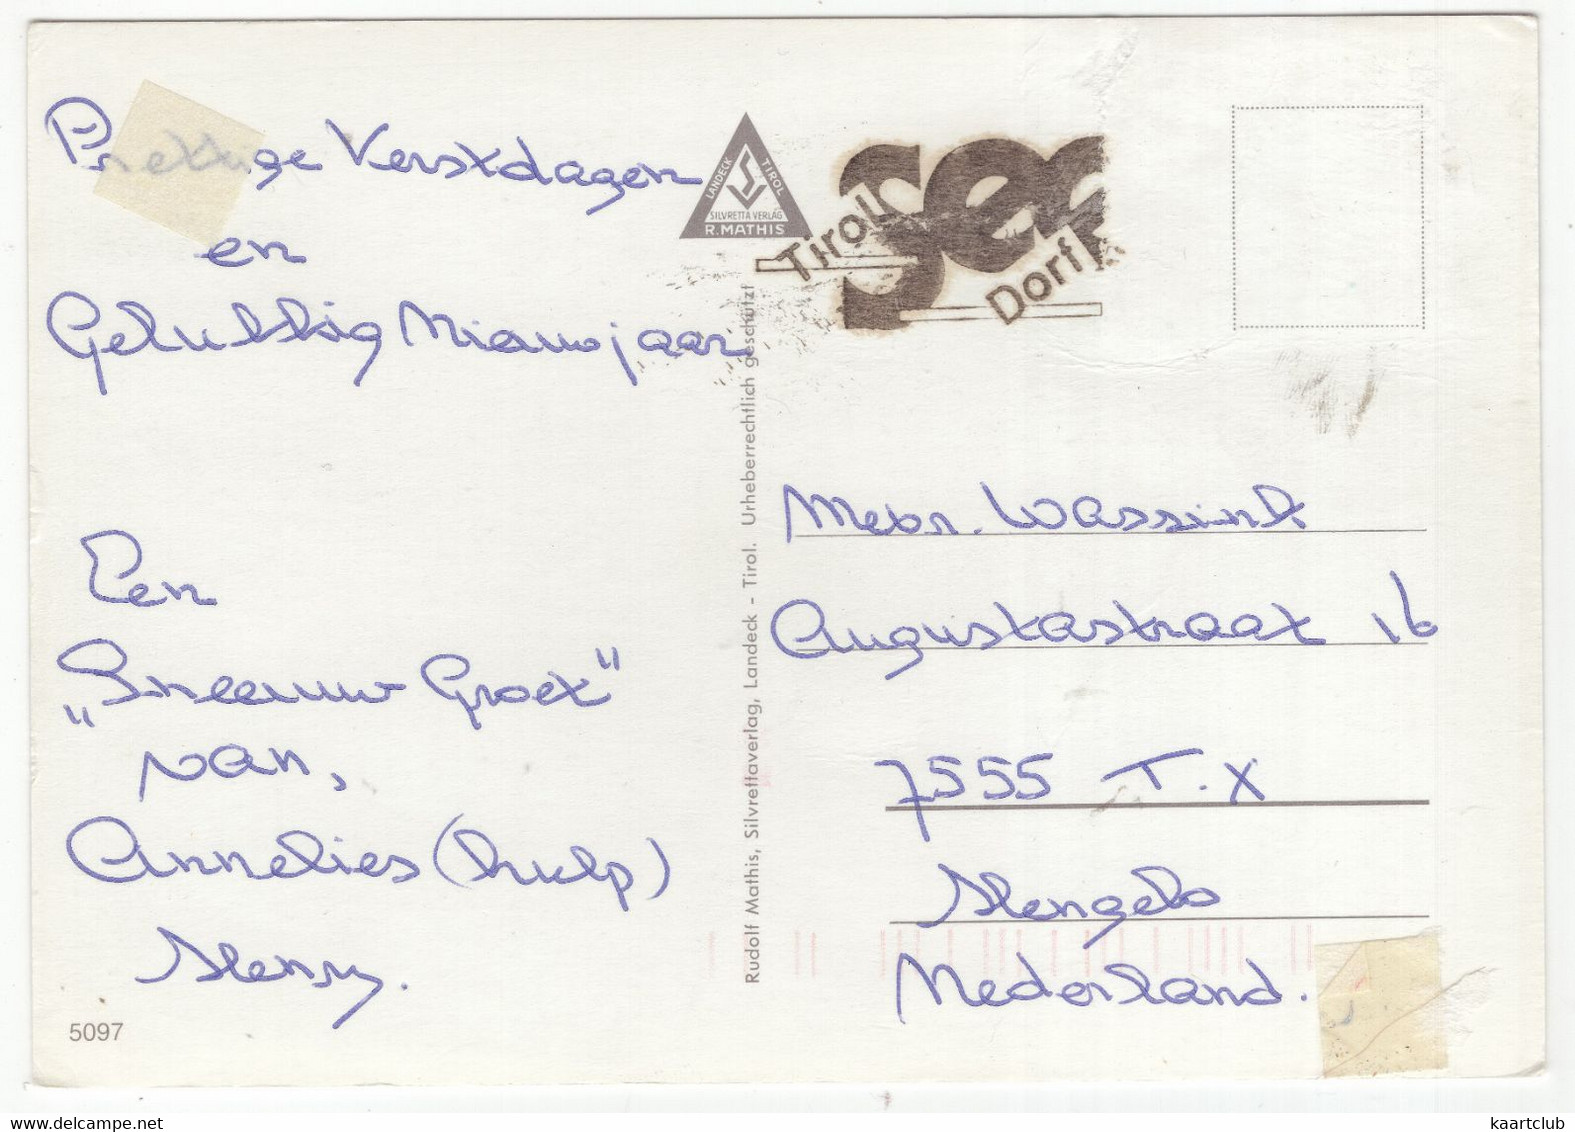 Prettige Kerstdagen
en
Gelukkig Nieuwjaar
Een
„Sneeuw Groet"
van,
Annelies (hulp)
Henry.
5097
LANDECK TIROL
SILVRETTA VERLAG
R. MATHIS
Tirol
see
Dorf
Rudolf Mathis, Silvrettaverlag, Landeck - Tirol. Urheberrechtlich geschützt
Mevr. Wassink
Augustastraat 16
7555 T.X
Hengelo
Nederland.
www.delcampe.net
kaartclub